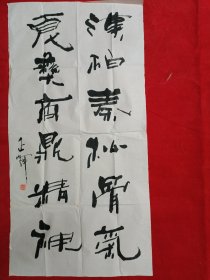 漢柏秦松骨氣
夏彝商鼎精神